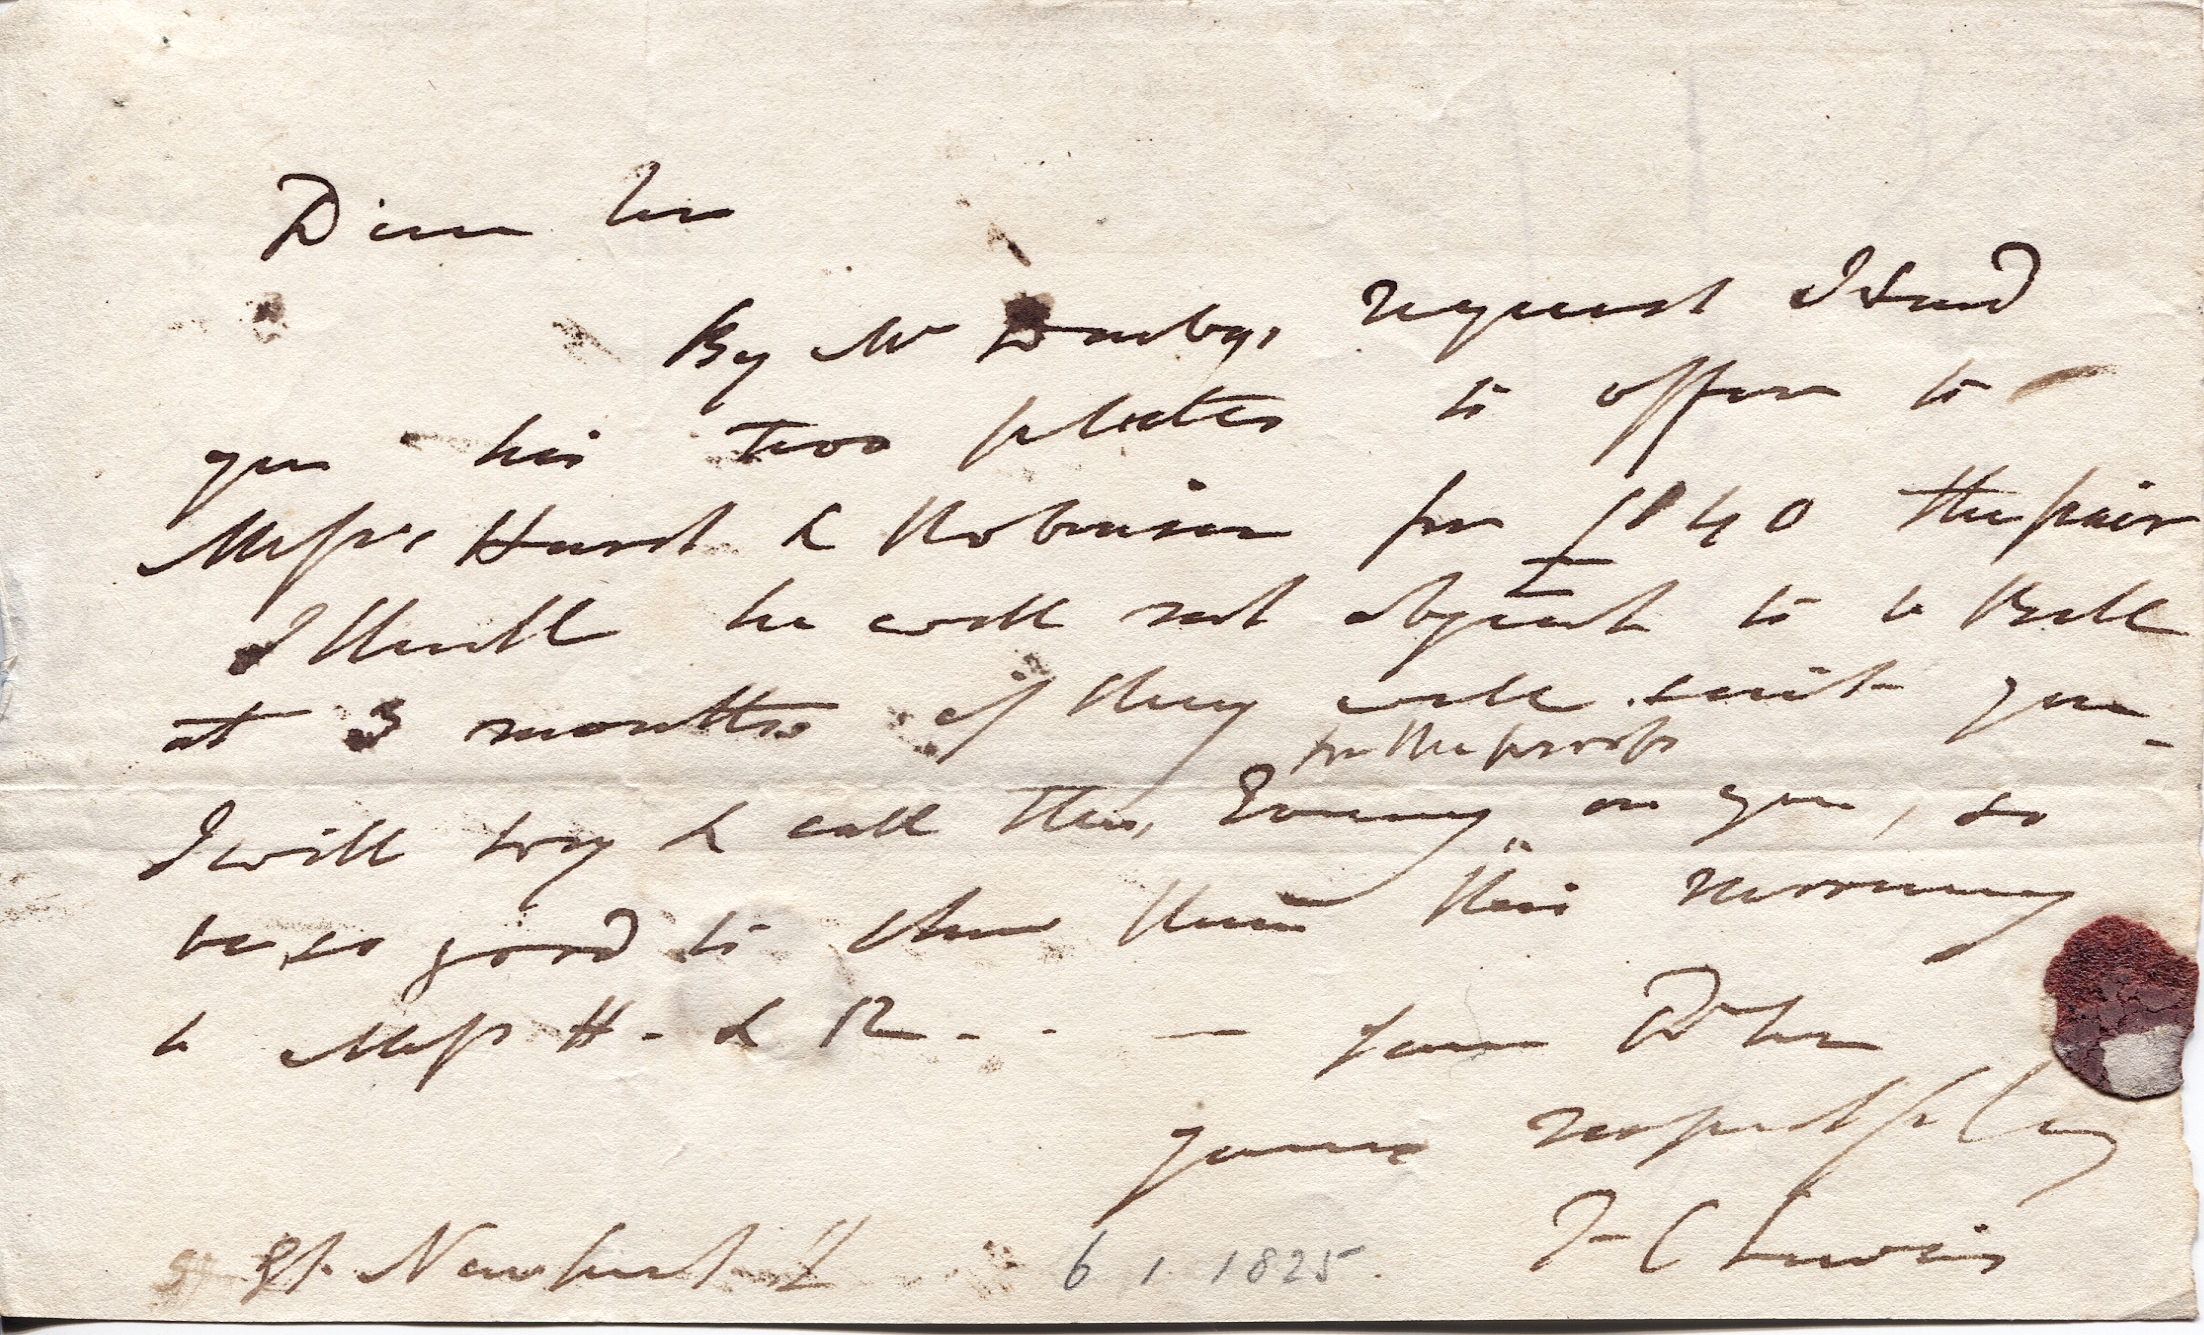 Dear Sir
By Mr Danby, request I send
you his two plates to offer to
Messrs Hurst & Robinson for £ 840 the pair
I think he will not object to a Bill
at 3 months if they will suit you -
for the proofs
I will try & call this Evening on you, so
be so good to shew them this morning
to Messrs H. & R. - - I am Dr Sir
yours respectfully
F C Lewis
Newport 6 1 1825